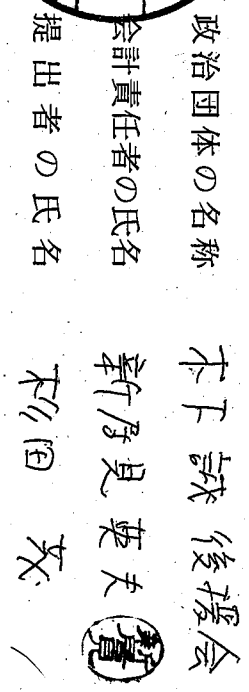 政治団体の名称 木下誠後援会
会計責任者の氏名 新居見英夫
提出者の氏名 杉田